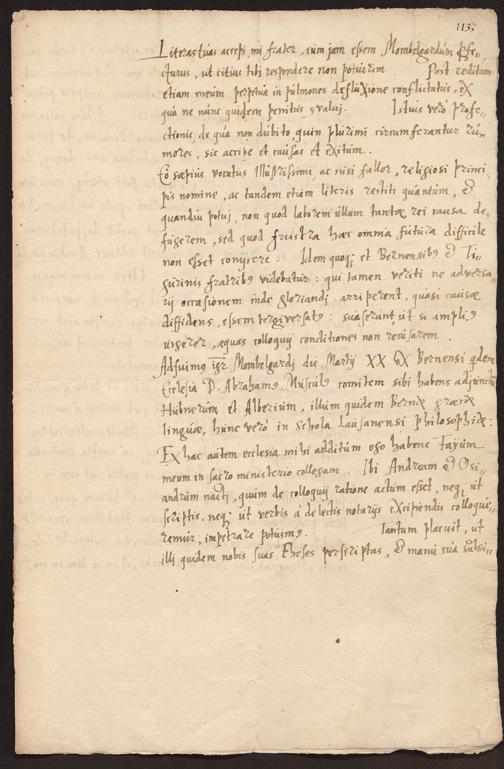 113.
Literas tuas accepi, mi frater, cum jam essem Mombelgardum profe-
cturus, ut citius tibi respondere non potuerim. Post reditum
etiam meum perpetua in pulmones defluxione conflictatus, ex
qua ne nunc quidem penitus convalui. Istius vero profe-
ctionis, de qua non dubito, quin plurimi circumferantur ru-
mores, sic accipe et causas et exitum.
Eo saepius vocatus Illustrissimi, ac nisi fallor, religiosi princi-
pis nomine, ac tandem etiam literis restiti quantum, et
quandiu potui, non quod laborem ullum tantae rei causa de-
fugerem, sed quod frustra haec omnia futura difficile
non esset conjicere: Idem quoq; et Bernensibus et Ti-
gurinis fratribus videbatur: qui tamen veriti ne adversa-
rij occasionem inde gloriandi arriperent, quasi causae
diffidens, essem tergiversatus: suaserunt ut si amplius
urgerer, aequas colloquij conditiones non recusarem.
Adfuimus igr Mombelgardj die Martij XX ex Bernensi qdem
Ecclesia D. Abrahamus Musculus comitem sibi habens adjunctum
Hubnerum et Alberium, illum quidem Bernae graecae
linguae, hunc vero in schola Lausanensi philosophiae:
Ex hac autem ecclesia mihi additum ego habens Fayum
meum in sacro ministerio collegam. Ibi Andream et Osi-
andrum nacti, quum de colloquij ratione actum esset, neq; ut
scriptis, neq; ut verbis a delectis notarijs excipiendis colloque-
remur, impetrare potuimus. Tantum placuit, ut
illi quidem nobis suas Theses perscriptas, et manu sua subsi-